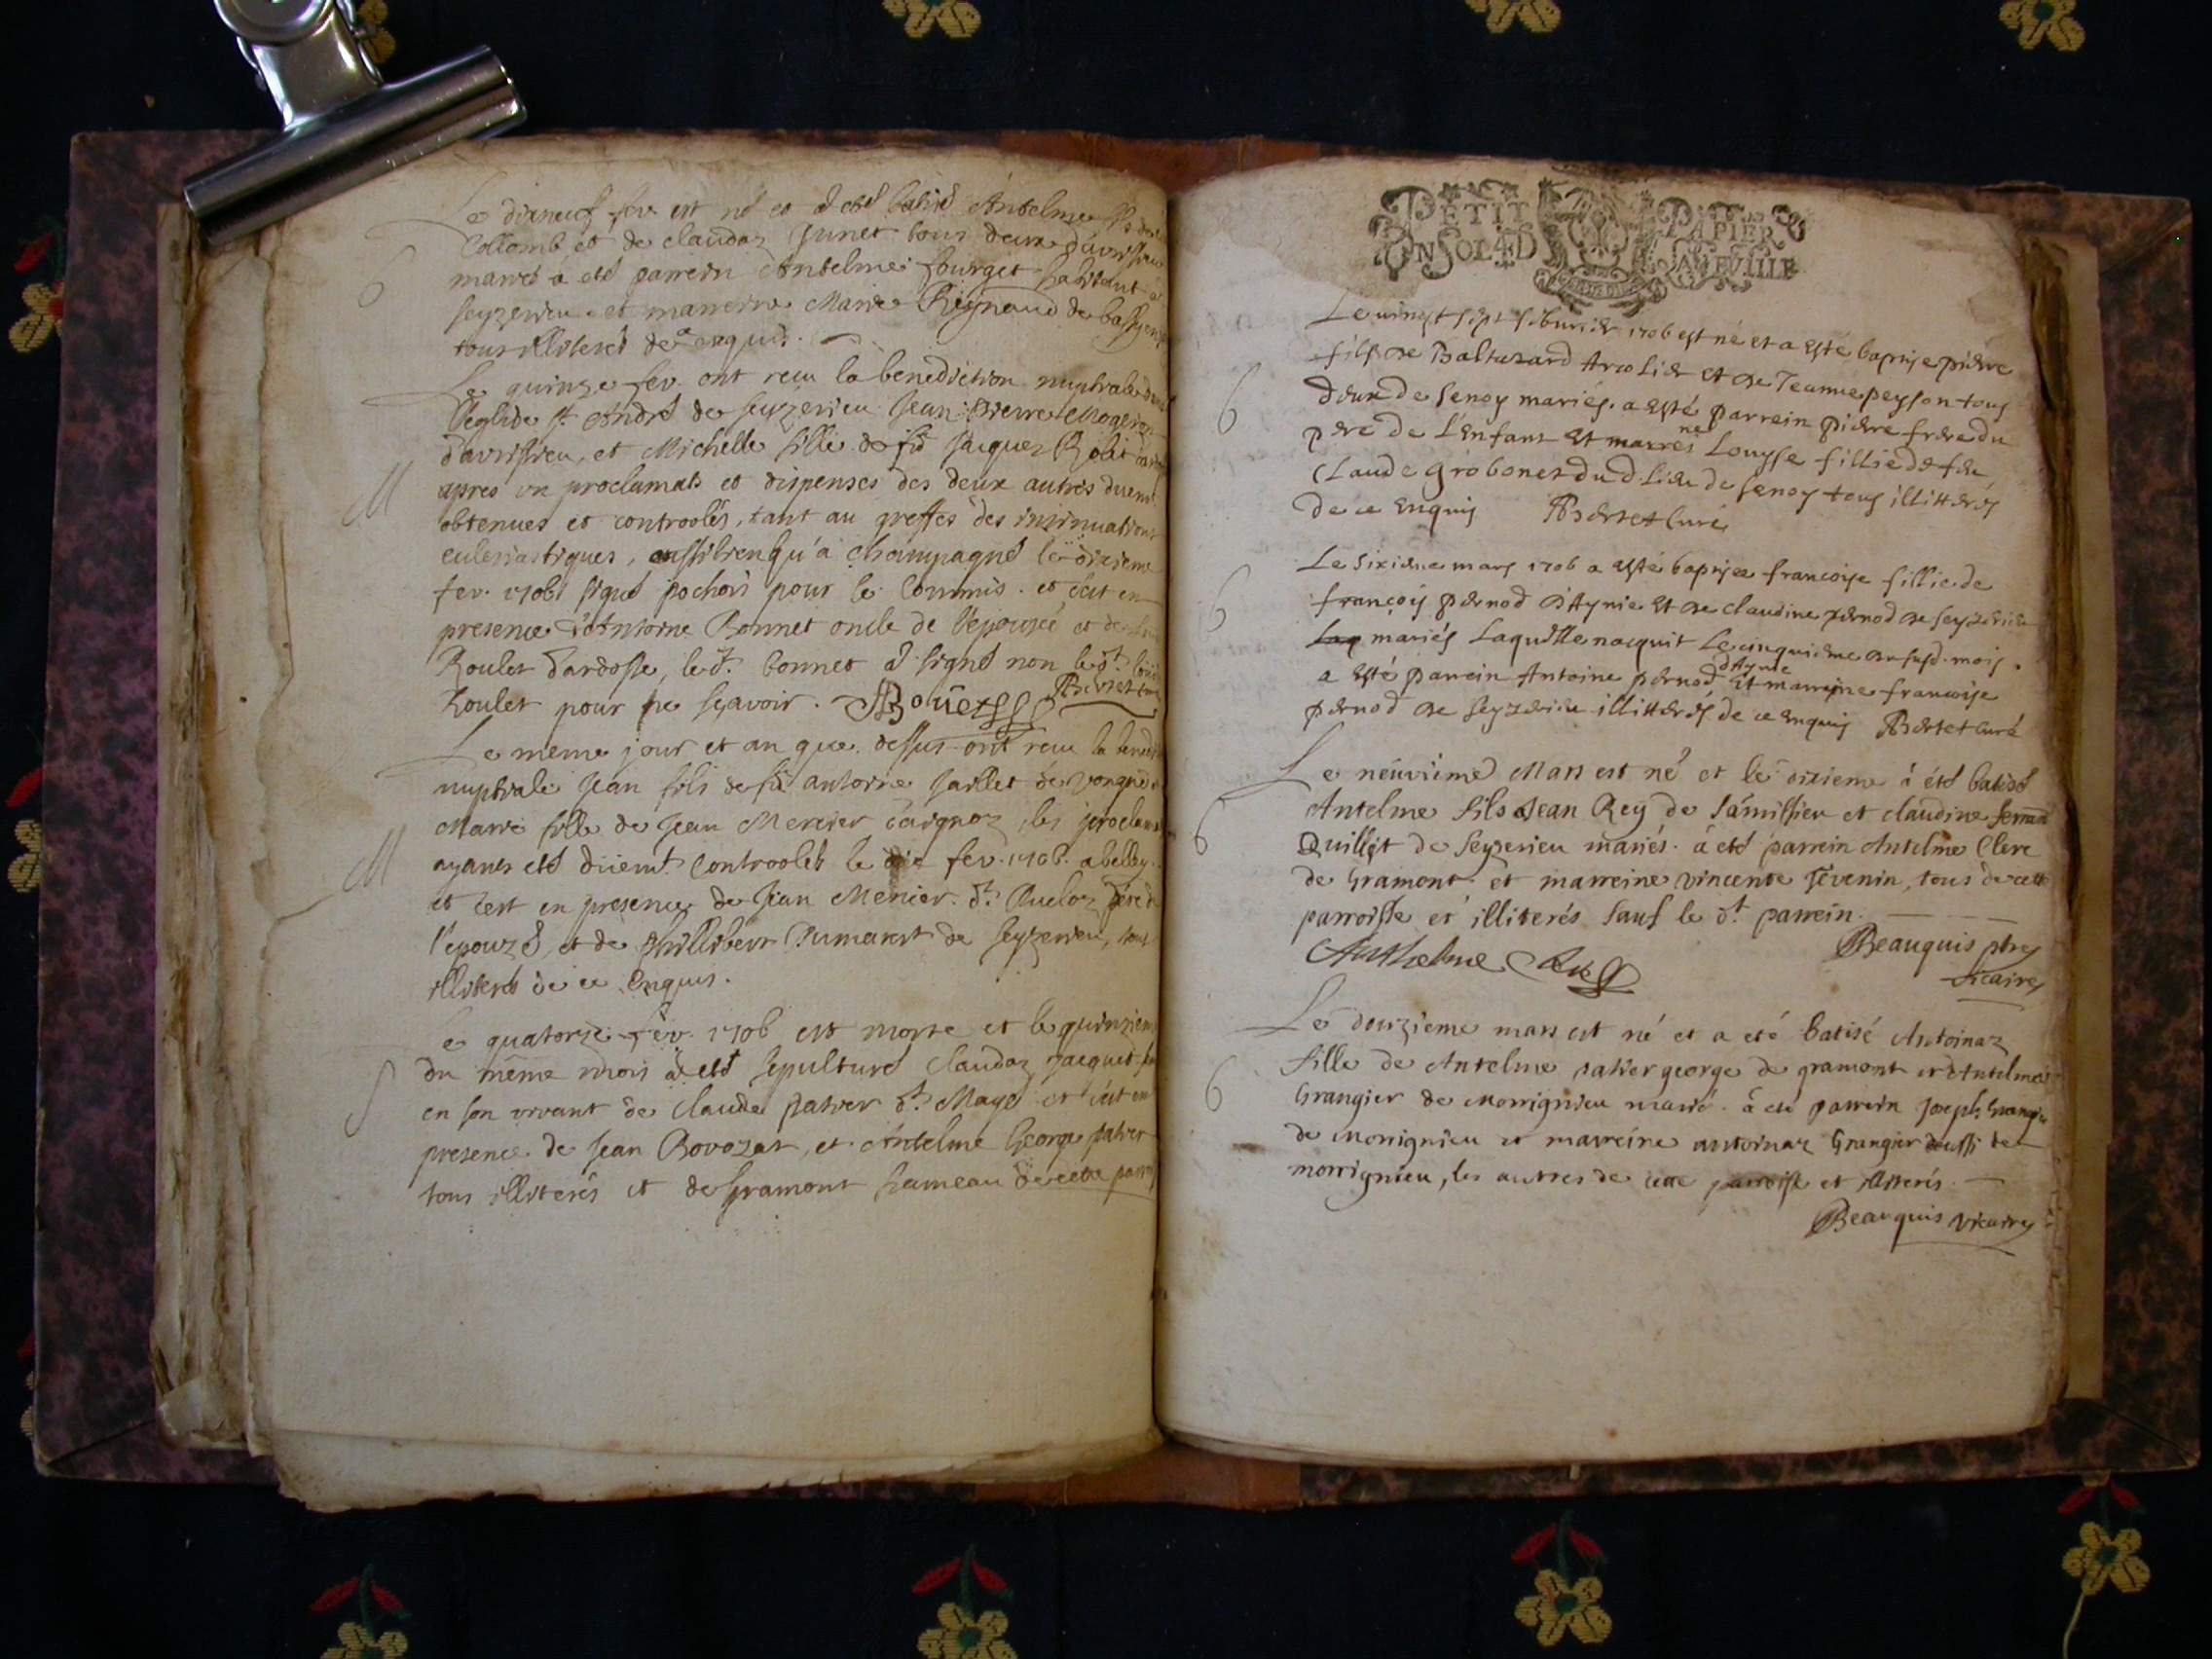 Le dixneuf fev. est né et a eté batisé Antelme fils de
Collomb et de claudaz Junet tous deux d'avrissieu
mariés a eté parrein Antelme fourget habitant a
seyzerieu et marreine Marie Reynaud de
tous illiterés de ce enquis.
Le quinze fev. ont reçu la benediction nuptiale dans
l'eglise st. André de seyzerieu Jean Pierre Mogeron
d'avrissieu, et Michelle fille de fû Jacques Rolet
apres un proclamats et dispenses des deux autres duemt.
obtenues et controolés, tant au greffes des insinuations
eclesiastiques, aussibien qu'à champagne le dixieme
fev. 1706 signé pochois pour le commis. et c'est en
presence d'Antoine Bonnet oncle de l'epousée et de
Roulet dardosse, le dt. bonnet a signé non le dt.
Roulet pour ne sçavoir. Bonet Bertet curé
Le meme jour et an que dessus ont reçu la
nuptiale Jean fils de fû antoine Jaillet de vongne
Marie fille de Jean Mercier les
ayants eté düemt. controolés le fev. 1706. a belley.
et c'est en presence de Jean Mercier dt. père de
l'epouzé, et de Philibert Dumarest de seyzerieu, tous
illiterés de ce enquis.
Le quatorze fev. 1706 est morte et le quinzieme
du même mois a eté sepulturé Claudaz Jacquet
en son vivant de Claude patier dt. Maye et c'est en
presence de Jean Bovozat, et Antelme George patier
tous illiterés et de gramont hameau de cette
PETIT PAPIER
UN SOL 4 D LA FEUILLE
Le vingt sept feburier 1706 est né et a esté baptise pierre
fils de Baltazard Arolier et de Jeanne peysson tous
deux de senoy mariés. a esté parrein pierre frere du
pere de L'enfant et marreine Louyse fillie de feu
Claude grobonet dud. lieu de senoy tous illitterés
de ce enquis Bertet curé
Le sixieme mars 1706 a esté baptisee francoise fillie de
françois pernod d'Aynie et de claudine pernod de seyzerieu
mariés Laquelle nacquit Le cinquieme du susd. mois.
a esté parrein Antoine pernod d'Aynie et marreine francoise
pernod de seyzerieu illitterés de ce enquis Bertet curé
Le neuvieme Mars est né et le dixieme à été batisé
Antelme fils Jean Rey de samissieu et claudine ferrand
Quillet de seyserieu mariés. a eté parrein Antelme Clerc
de gramont et marreine vincente Tevenin, tous de cette
parroisse et illiterés sauf le dt parrein.
Anthelme Beauquis ptre
vicaire
Le douzieme mars est né et a eté batisé Antoinaz
fille de Antelme patier george de gramont et d'Antelmaz
Grangier de morrignieu marié. a eté parrein Joseph Grangier
de morrignieu et marreine antoinaz Grangier d'aussi de
morrignieu, les autres de cette parroisse et illiterés.
Beauquis vicaire